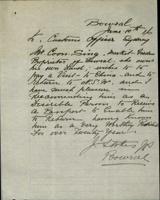 Bowral
June 10th
To Customs Office Sydney
Mr Coon Sing, Market Gardener
Proprietor of Bowral, who owns
his own Land, wishes to
pay a Visit to China and to
Return to N.S.W. and I
have much pleasure in
Recommending him as an
desirable Person to Receive
a Passport to Enable him
to Return, having known
him as a Very Worthy Resident
for over Twenty Years
J. Stokes JP
Bowral